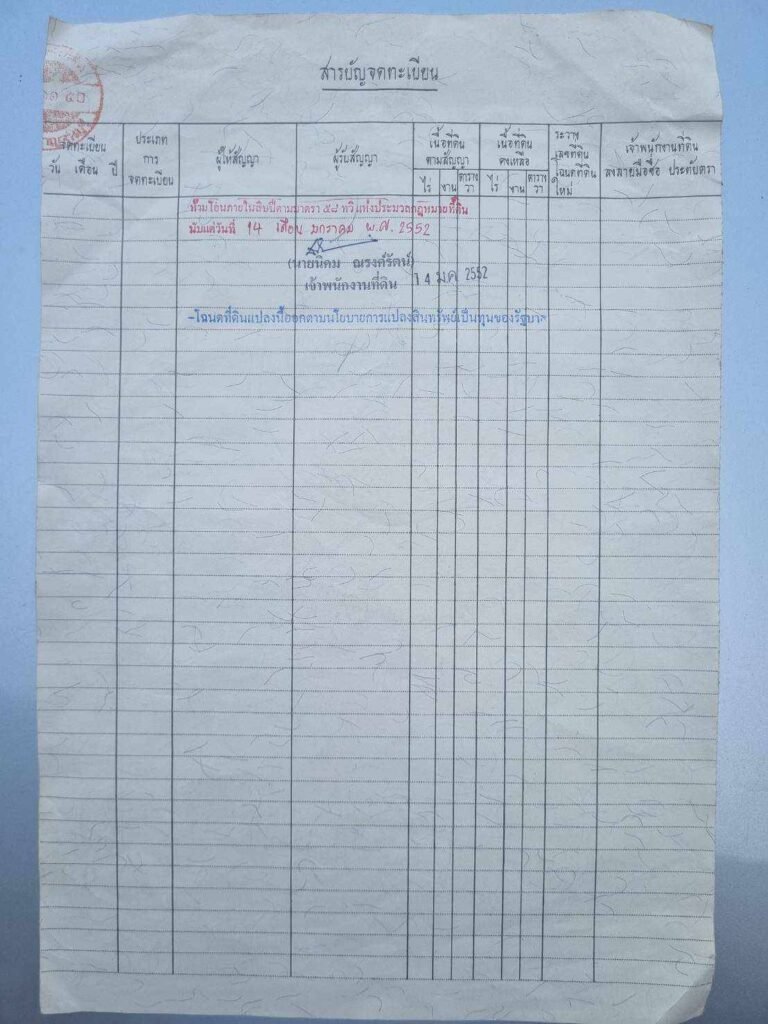 สารบัญจดทะเบียน
จดทะเบียน
วัน เดือน ปี
ประเภท
การ
จดทะเบียน
ผู้ให้สัญญา
ผู้รับสัญญา
เนื้อที่ดิน
ตามสัญญา
ไร่ งาน ตาราง
วา
เนื้อที่ดิน
คงเหลือ
ไร่ งาน ตาราง
วา
ระวาง
เลขที่ดิน
โฉนดที่ดิน
ใหม่
เจ้าพนักงานที่ดิน
ลงลายมือชื่อ ประทับตรา
ห้ามโอนภายในสิบปีตามมาตรา ๕๘ ทวิ แห่งประมวลกฎหมายที่ดิน
นับแต่วันที่ 14 เดือน มกราคม พ.ศ. 2552
(นายนิคม ณรงค์รัตน์)
เจ้าพนักงานที่ดิน
14 ม.ค. 2552
-โฉนดที่ดินแปลงนี้ออกตามนโยบายการแปลงสินทรัพย์เป็นทุนของรัฐบาล